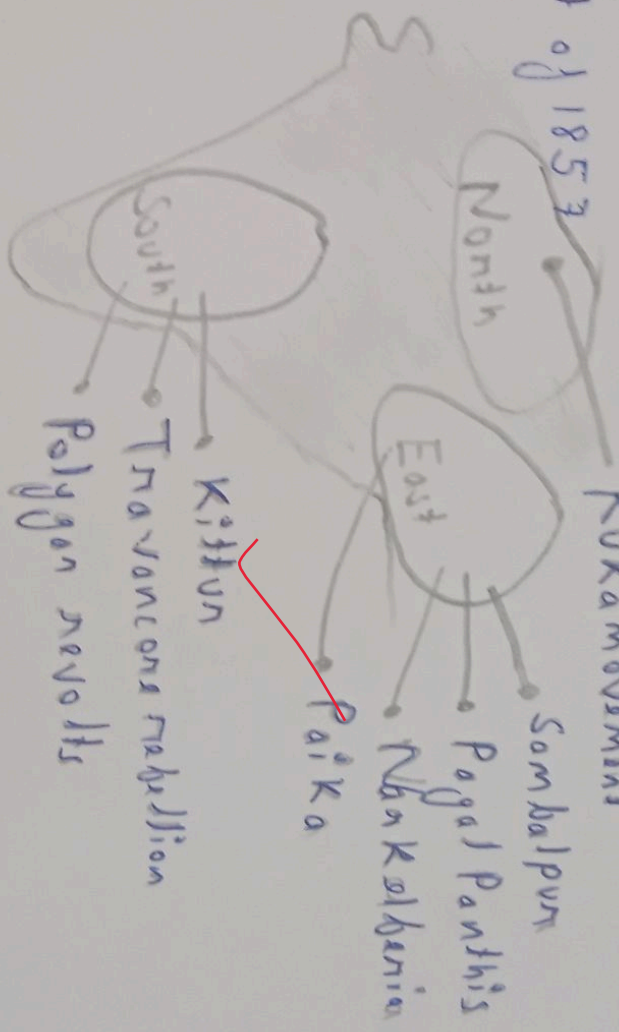 of 1857
North
Kuka movement
East
Sambalpur
Pagal Panthis
Narkelberia
Paika
South
Kittur
Travancore rebellion
Polygar revolts